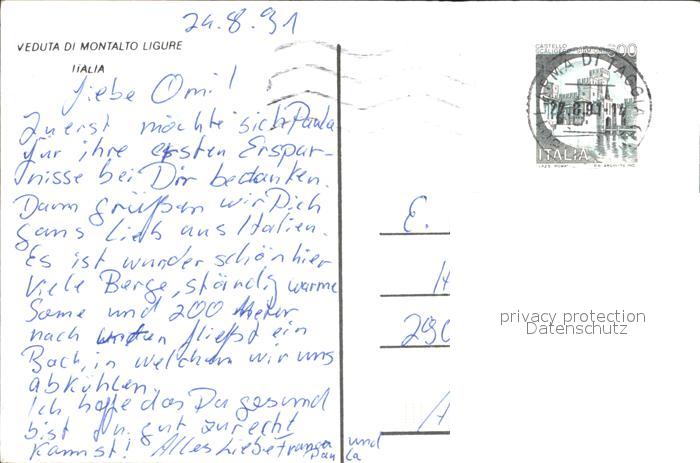 24.8.91
VEDUTA DI MONTALTO LIGURE
ITALIA
Liebe Omi!
Zuerst möchte sich Paula
für ihre ersten Erspar-
nisse bei Dir bedanken.
Dann grüßen wir Dich
gans lieb aus Italien.
Es ist wunder schön hier
Viele Berge, ständig warme
Sonne und 200 Meter
nach unten fließt ein
Bach, in welchem wir uns
abkühlen.
Ich hoffe das Du gesund
bist u. gut zurecht
kommst! Alles Liebe
und
Paula
CASTELLO
ITALIA
DI TAGGIA
E.
290
privacy protection
Datenschutz